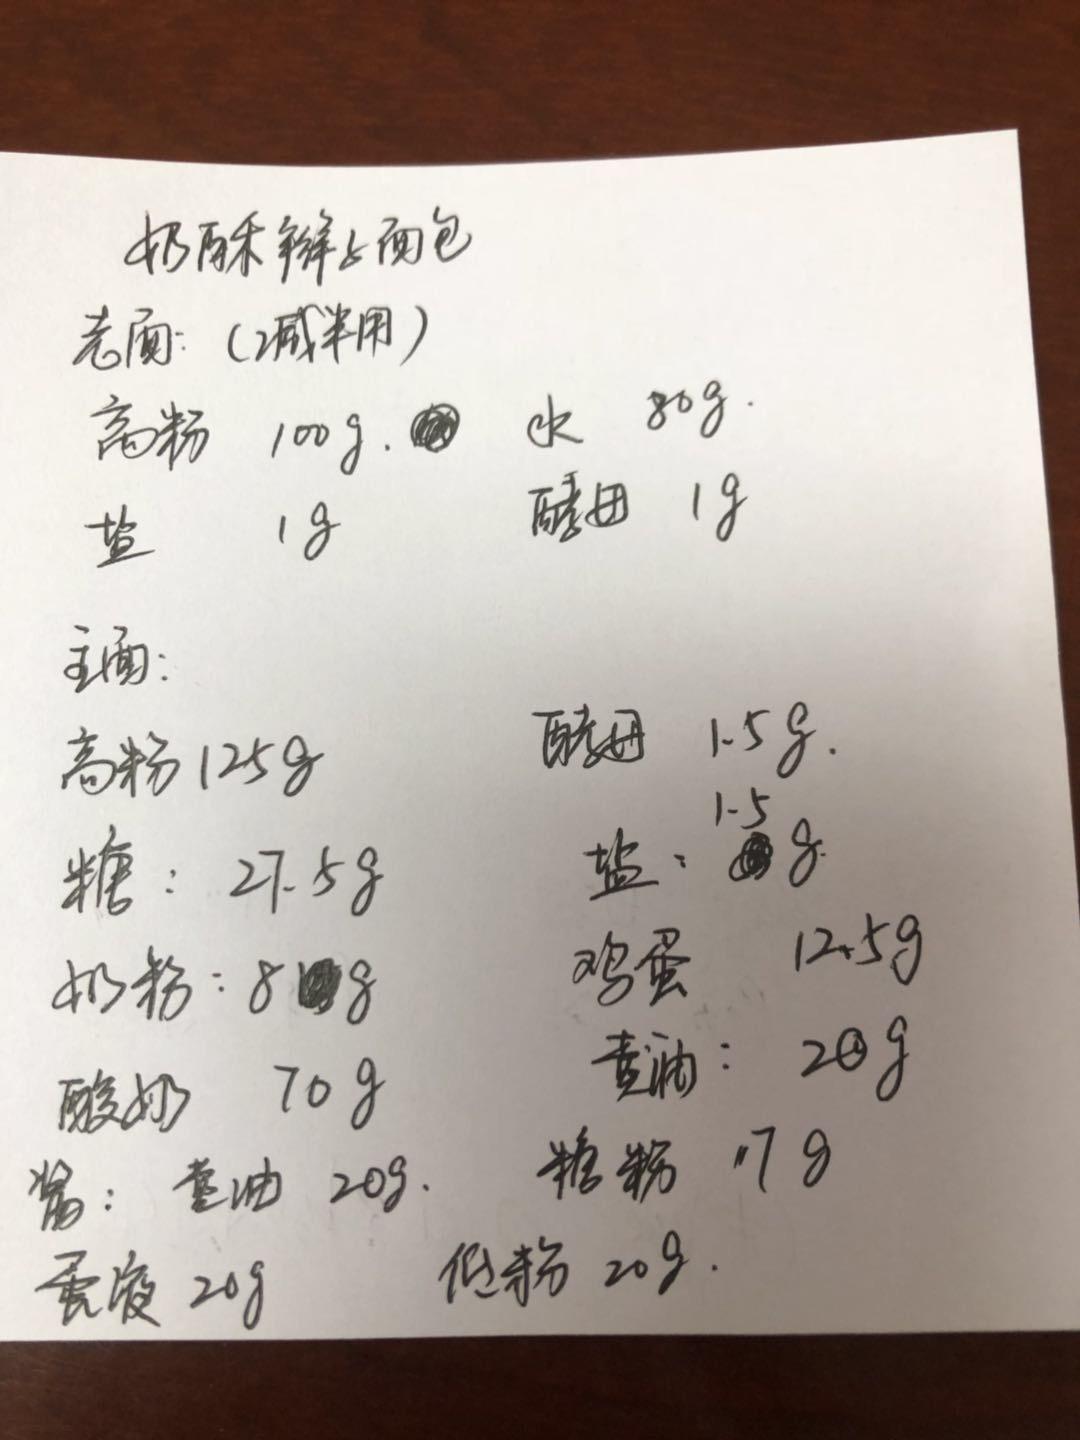 奶酥辫子面包
老面:(减半用)
高粉 100g. 水 80g.
盐 1g 酵母 1g
主面:
高粉 125g 酵母 1.5g.
糖: 27.5g 盐: 1.5g.
奶粉: 8g 鸡蛋 12.5g
酸奶 70g 黄油: 20g
酱: 黄油 20g. 糖粉 17g
蛋液 20g 低粉 20g.